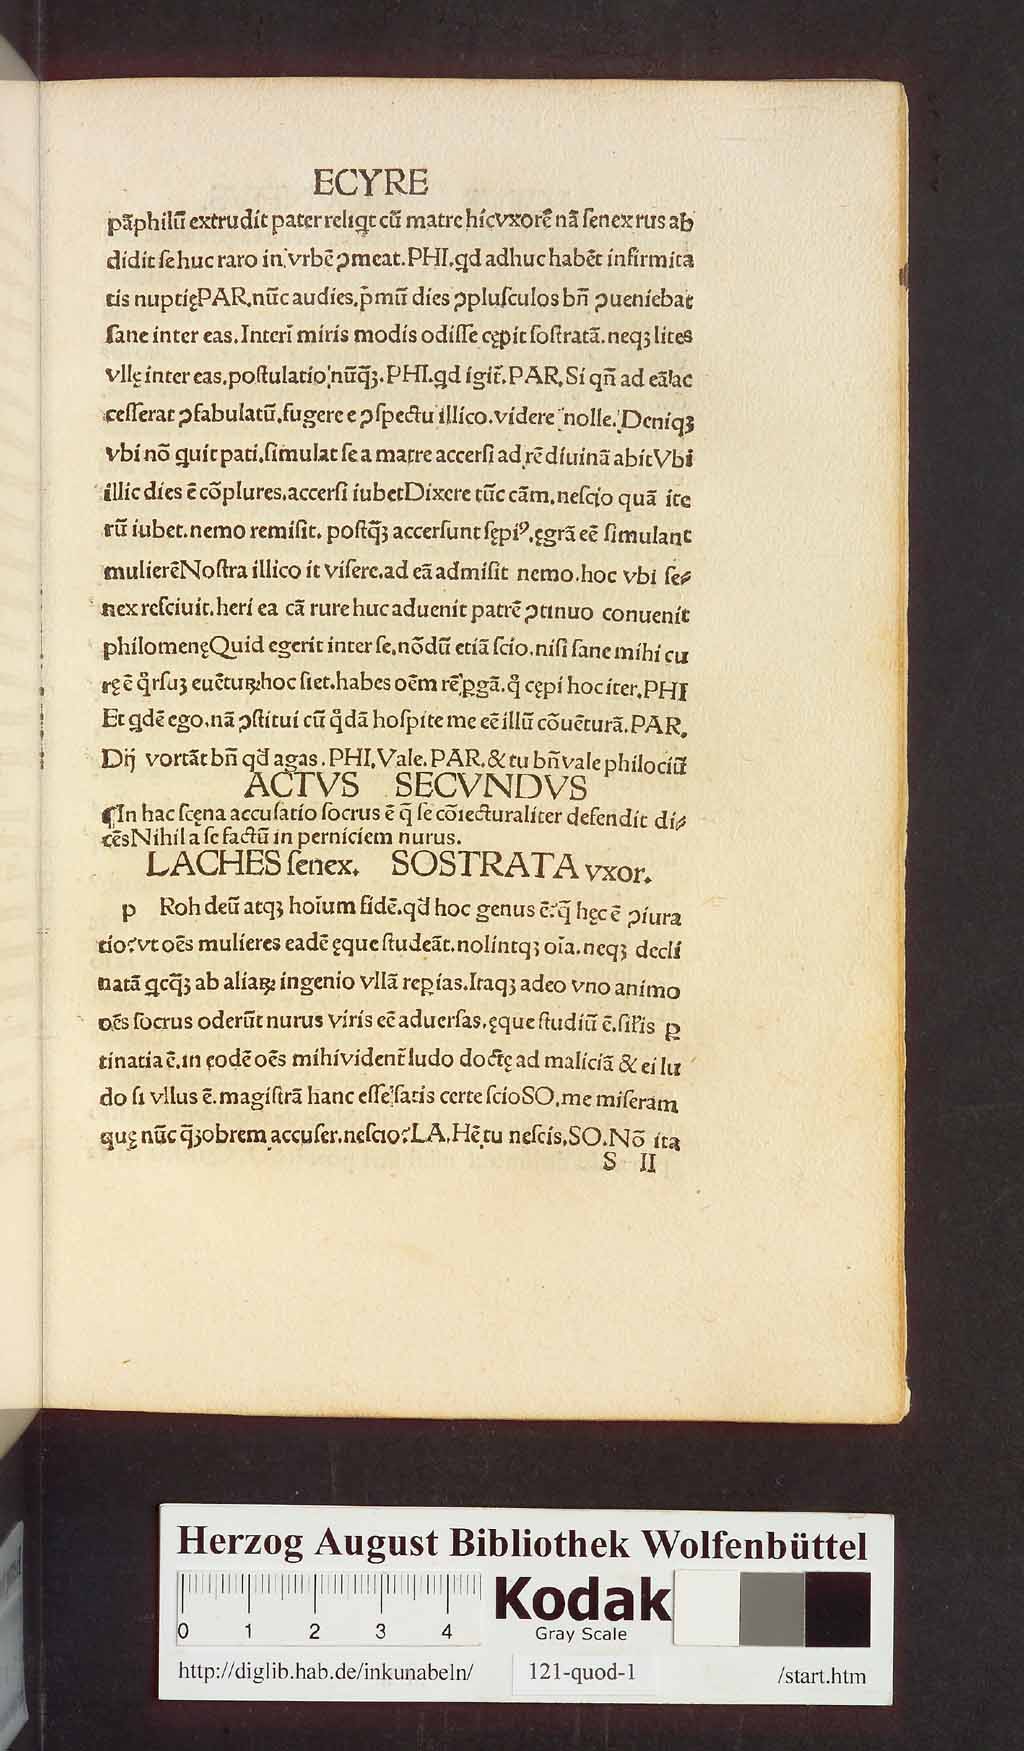 ECYRE
pãphilũ extrudit pater reliq̃t cũ matre hic vxorẽ nã ſenex rus ab
didit ſe huc raro in vrbẽ ꝯmeat. PHI. qd adhuc habẽt infirmita
tis nuptięPAR. nũc audies. p̃mũ dies ꝯpluſculos bñ ꝯueniebat
ſane inter eas. Interĩ miris modis odiſſe cępit ſoſtratã. neqꝫ lites
vllę inter eas. poſtulatio nũq̃ꝫ. PHI. qd igit̃. PAR. Si qñ ad eã ac
ceſſerat ꝯfabulatũ. fugere e ꝯſpectu illico. videre nolle. Deniqꝫ
vbi nõ quit pati. ſimulat ſe a matre accerſi ad rẽ diuinã abitVbi
illic dies ẽ cõplures. accerſi iubetDixere tũc cãm. neſcio quã ite
rũ iubet. nemo remiſit. poſtq̃ꝫ accerſunt ſępiꝰ. ęgrã eẽ ſimulant
mulierẽNoſtra illico it viſere. ad eã admiſit nemo. hoc vbi ſe⸗
nex reſciuit. heri ea cã rure huc aduenit patrẽ ꝯtinuo conuenit
philomenęQuid egerit inter ſe. nõdũ etiã ſcio. niſi ſane mihi cu
rę ẽ q̊rſuꝫ euẽtuꝝ hoc ſiet. habes oẽm rẽ ꝑgã. q̊ cępi hoc iter. PHI
Et qdẽ ego. nã ꝯſtitui cũ q̊dã hoſpite me eẽ illũ cõuẽturã. PAR.
Dij vortãt bñ qd̃ agas. PHI. Vale. PAR. & tu bñ vale philociũ
ACTVS SECVNDVS
¶In hac ſcęna accuſatio ſocrus ẽ q̃ ſe cõiecturaliter defendit di⸗
cẽsNihil a ſe factũ in perniciem nurus.
LACHES ſenex. SOSTRATA vxor.
p Roh deũ atqꝫ hoĩum fidẽ. qd̃ hoc genus ẽ? q̃ hęc ẽ ꝯiura
tio? vt oẽs mulieres eadẽ ęque ſtudeãt. nolintqꝫ oĩa. neqꝫ decli
natã qcq̃ꝫ ab aliaꝝ ingenio vllã reꝑias. Itaqꝫ adeo vno animo
oẽs ſocrus oderũt nurus viris eẽ aduerſas. ęque ſtudiũ ẽ. ſiľis ꝑ
tinatia ẽ. in eodẽ oẽs mihi vident̃ ludo doctę ad maliciã & ei lu
do ſi vllus ẽ. magiſtrã hanc eſſe ſatis certe ſcioSO. me miſeram
quę nũc q̃ꝫobrem accuſer. neſcio? LA. Hẽ tu neſcis. SO. Nõ ita
S II
Herzog August Bibliothek Wolfenbüttel
0 1 2 3 4 Kodak
Gray Scale
http://diglib.hab.de/inkunabeln/ 121-quod-1 /start.htm